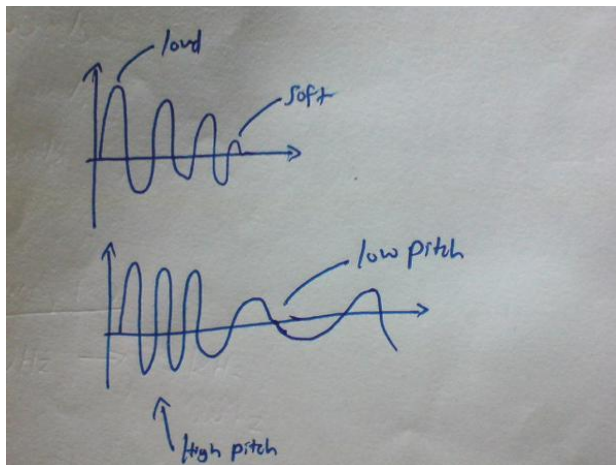 loud
soft
low pitch
High pitch